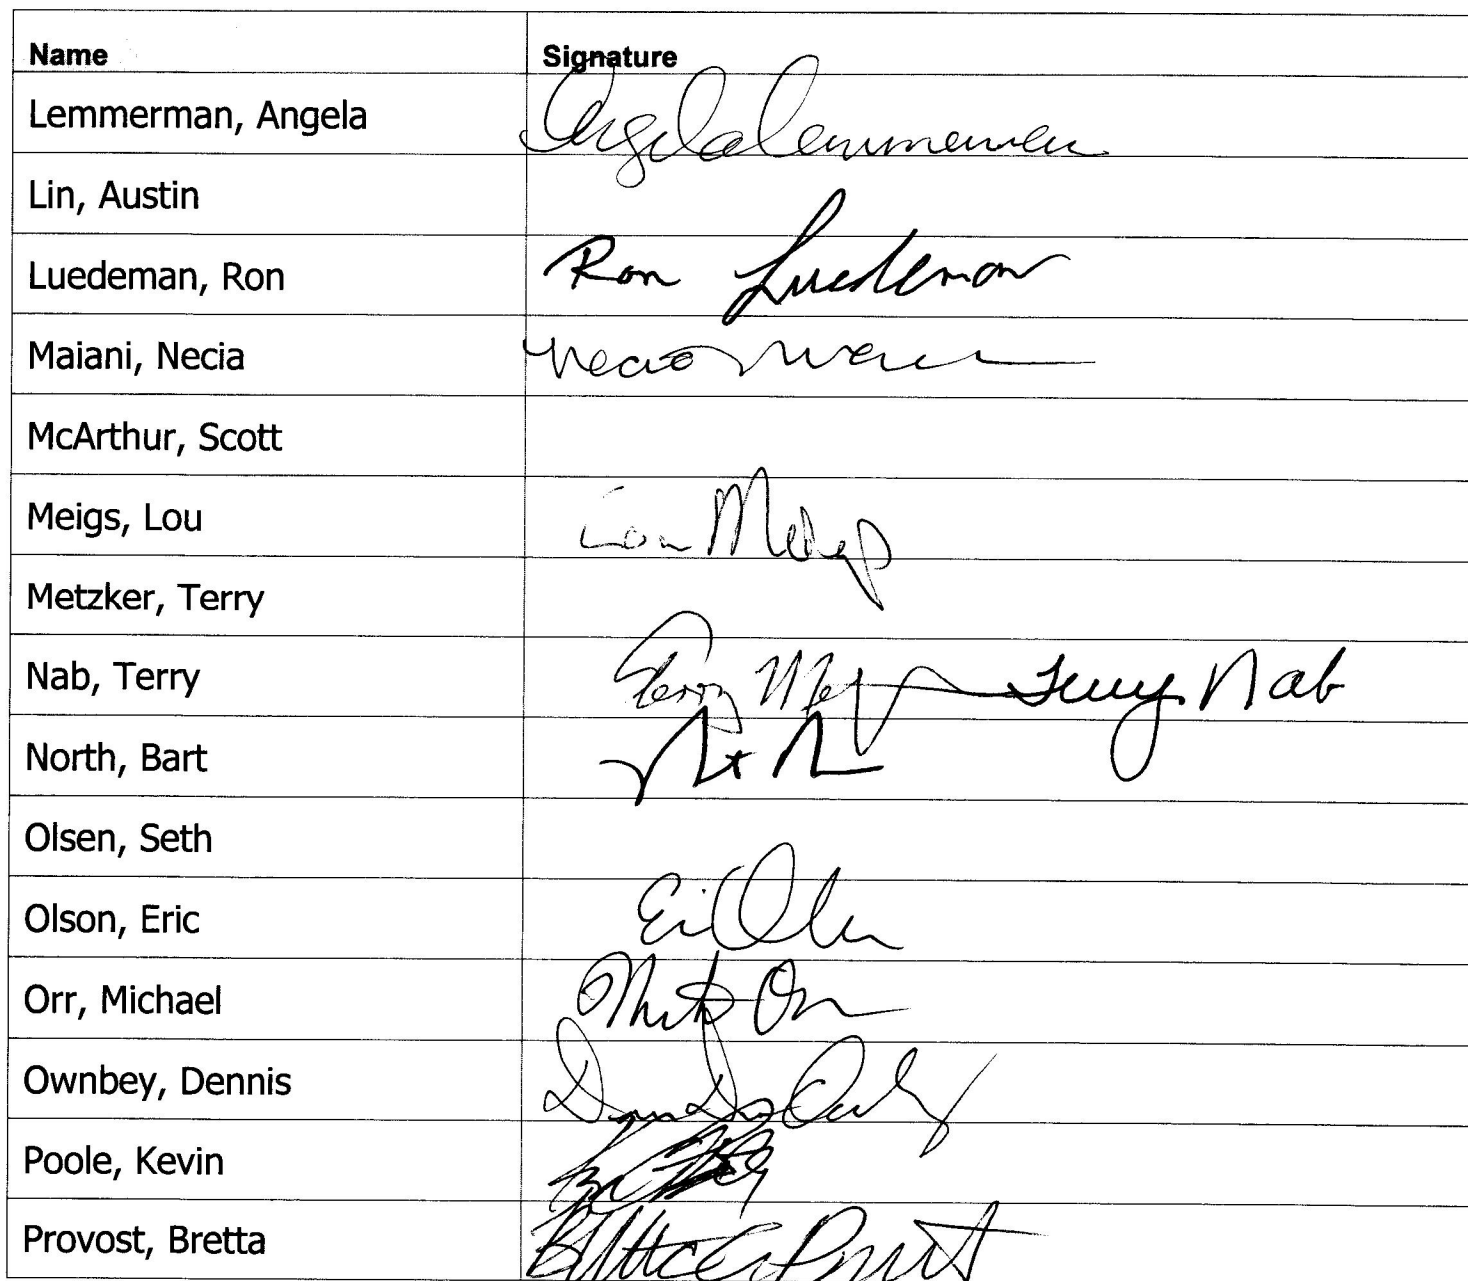 Name Signature
Lemmerman, Angela Angela Lemmerman
Lin, Austin
Luedeman, Ron Ron Luedeman
Maiani, Necia Necia
McArthur, Scott
Meigs, Lou Lou Meigs
Metzker, Terry
Nab, Terry Terry Terry Nab
North, Bart
Olsen, Seth
Olson, Eric
Orr, Michael Orr
Ownbey, Dennis
Poole, Kevin
Provost, Bretta